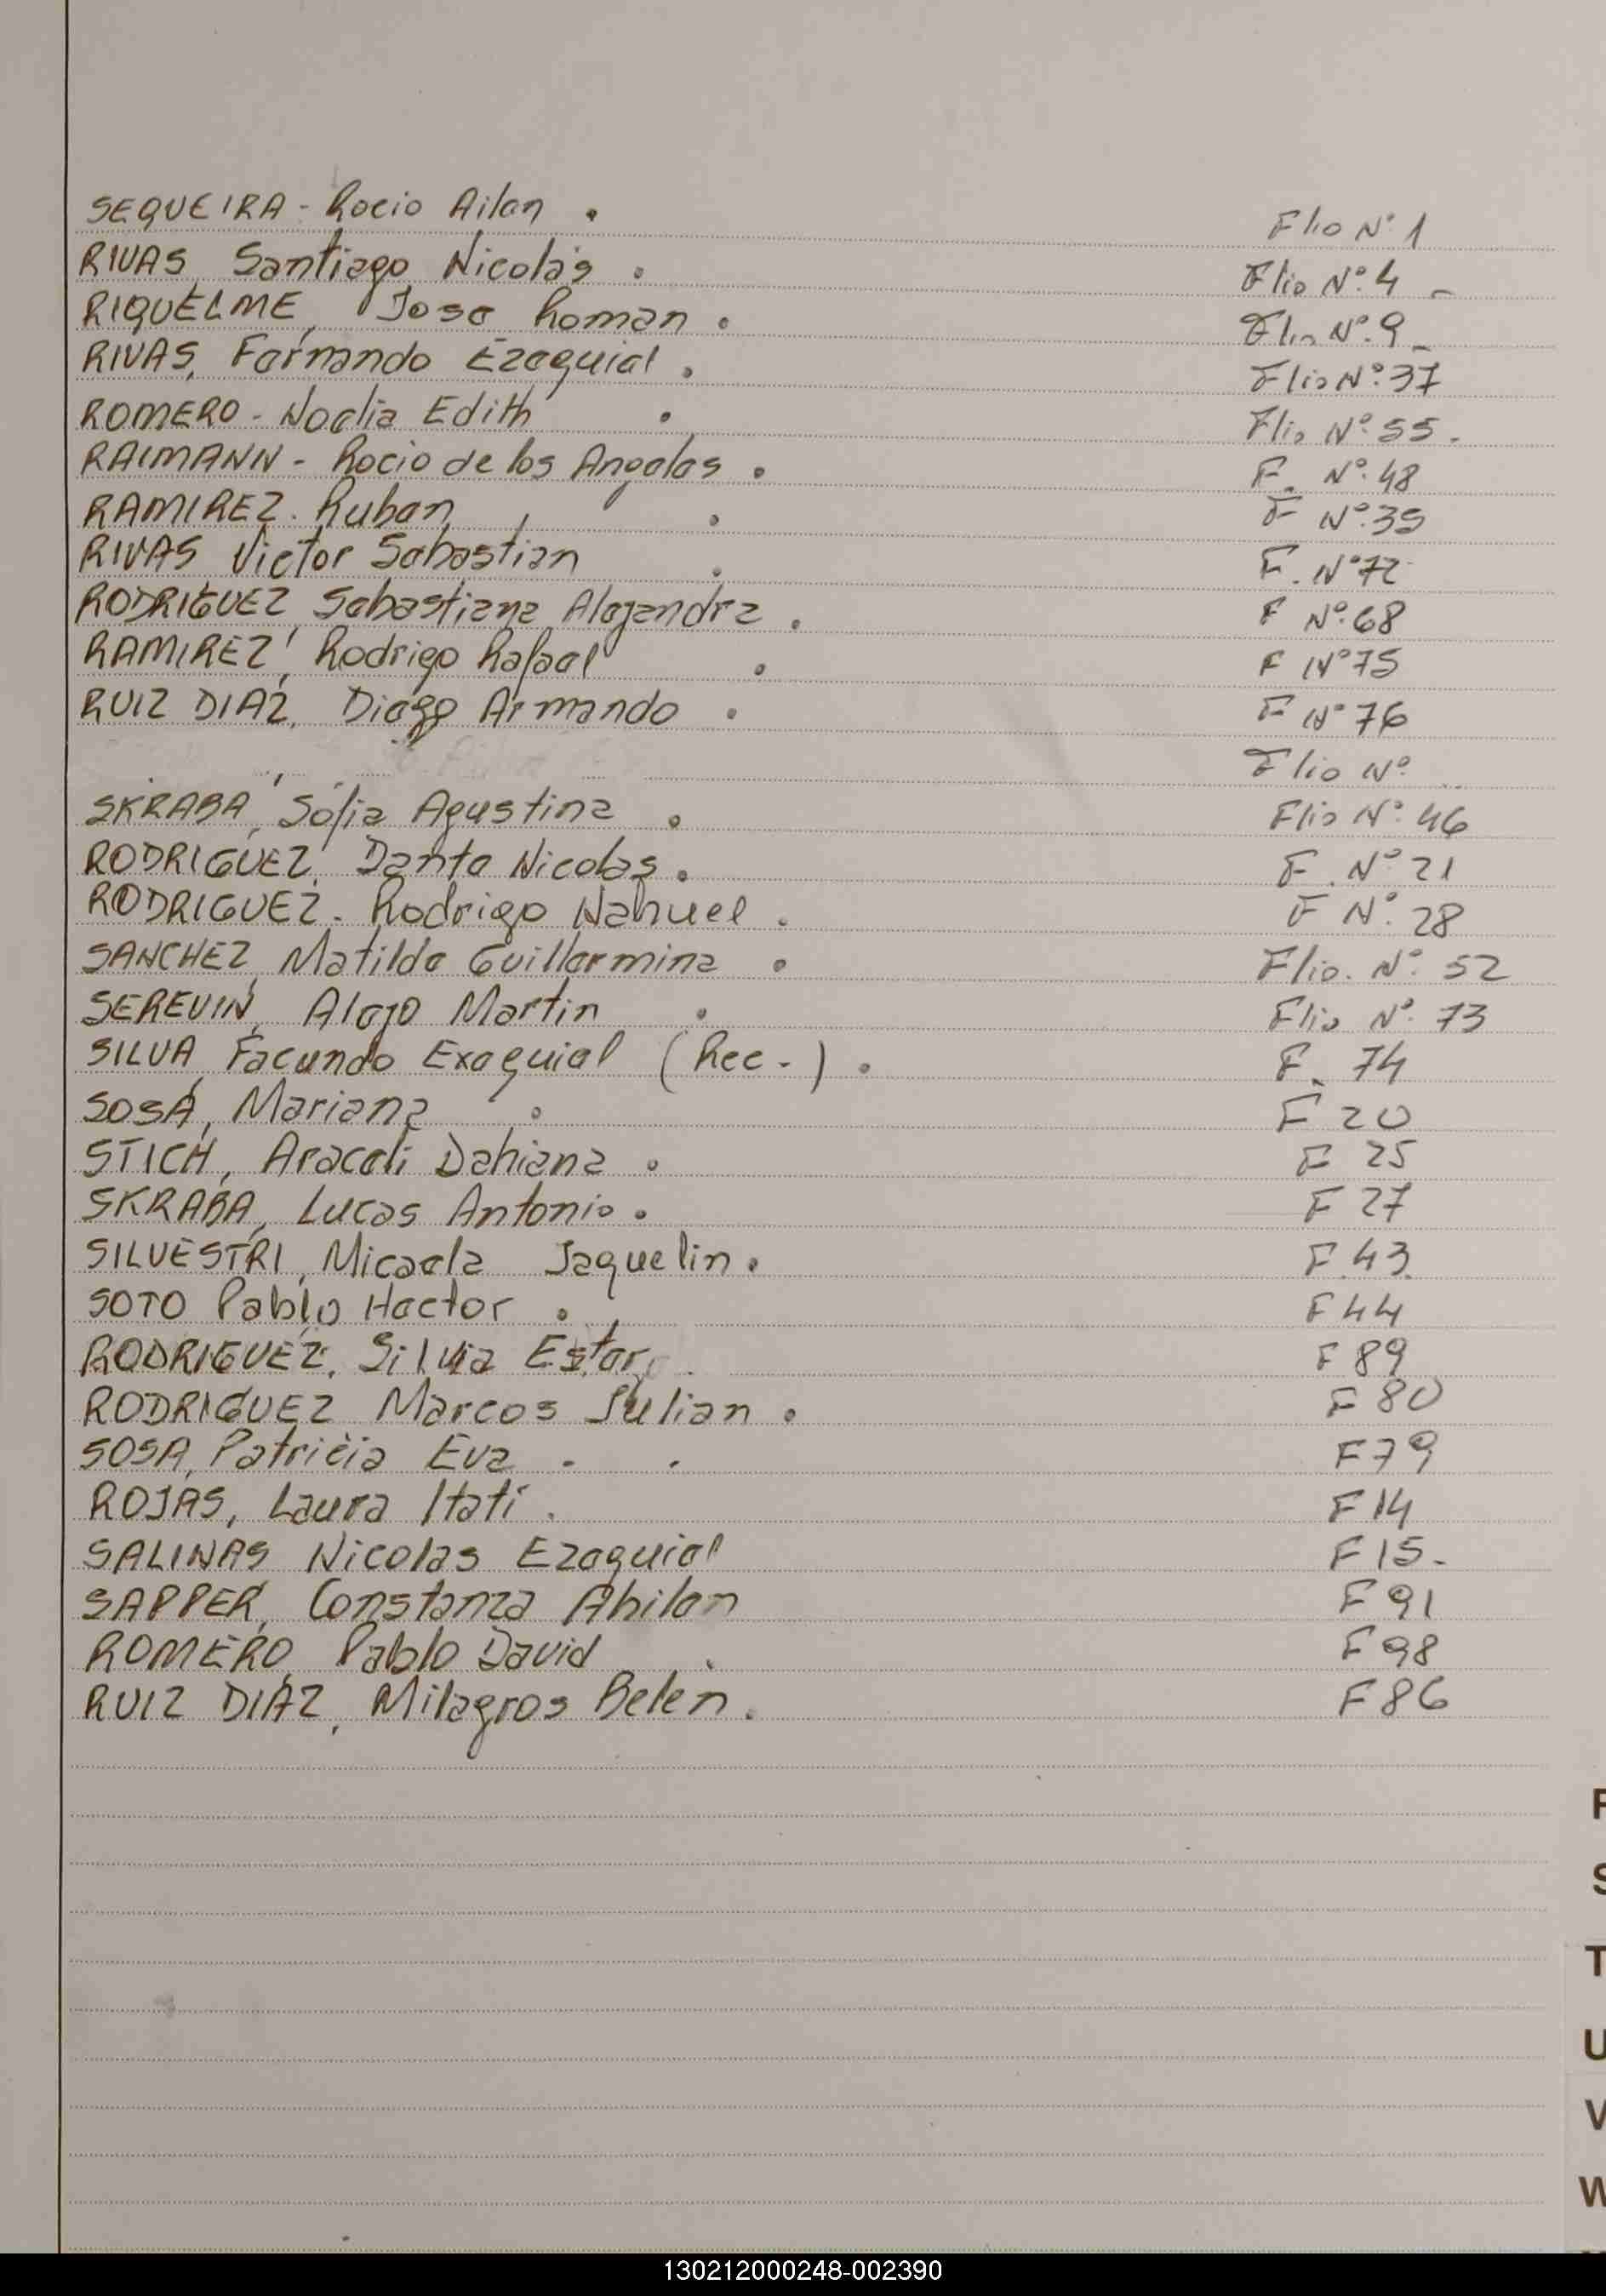 SEQUEIRA - Rocio Ailen . Flio Nº 1
RIVAS, Santiago Nicolás . Flio Nº 4 -
RIQUELME, Jose Roman . Flio Nº 9 -
RIVAS, Fernando Ezequiel . Flio Nº 37
ROMERO - Noelia Edith . Flio Nº 55 -
RAIMANN - Rocio de los Angeles . F. Nº 48
RAMIREZ . Ruben . F Nº 39
RIVAS Victor Sebastian . F. Nº 72
RODRIGUEZ, Sebastiana Alejandra . F Nº 68
RAMIREZ, Rodrigo Rafael . F Nº 75
RUIZ DIAZ, Diego Armando . F Nº 76
Flio Nº
SKRABA, Sofia Agustina . Flio Nº 46
RODRIGUEZ, Dante Nicolas . F. Nº 21
RODRIGUEZ - Rodrigo Nahuel . F Nº 28
SANCHEZ, Matilde Guillermina . Flio. Nº 52
SEREVIN, Alejo Martin . Flio Nº 73
SILVA, Facundo Exequiel (Rec-) . F. 74
SOSA, Mariana . F 20
STICH, Araceli Dahiana . F 25
SKRABA, Lucas Antonio . F 27
SILVESTRI, Micaela Jaquelin . F 43.
SOTO Pablo Hector . F 44
RODRIGUEZ, Silvia Ester F 89
RODRIGUEZ Marcos Julian . F 80
SOSA, Patricia Eva . . F 79
ROJAS, Laura Itatí . F 14
SALINAS Nicolas Ezequiel F 15 -
SAPPER, Constanza Ahilen F 91
ROMERO, Pablo David . F 98
RUIZ DIAZ, Milagros Belen . F 86
S
T
U
V
W
130212000248-002390